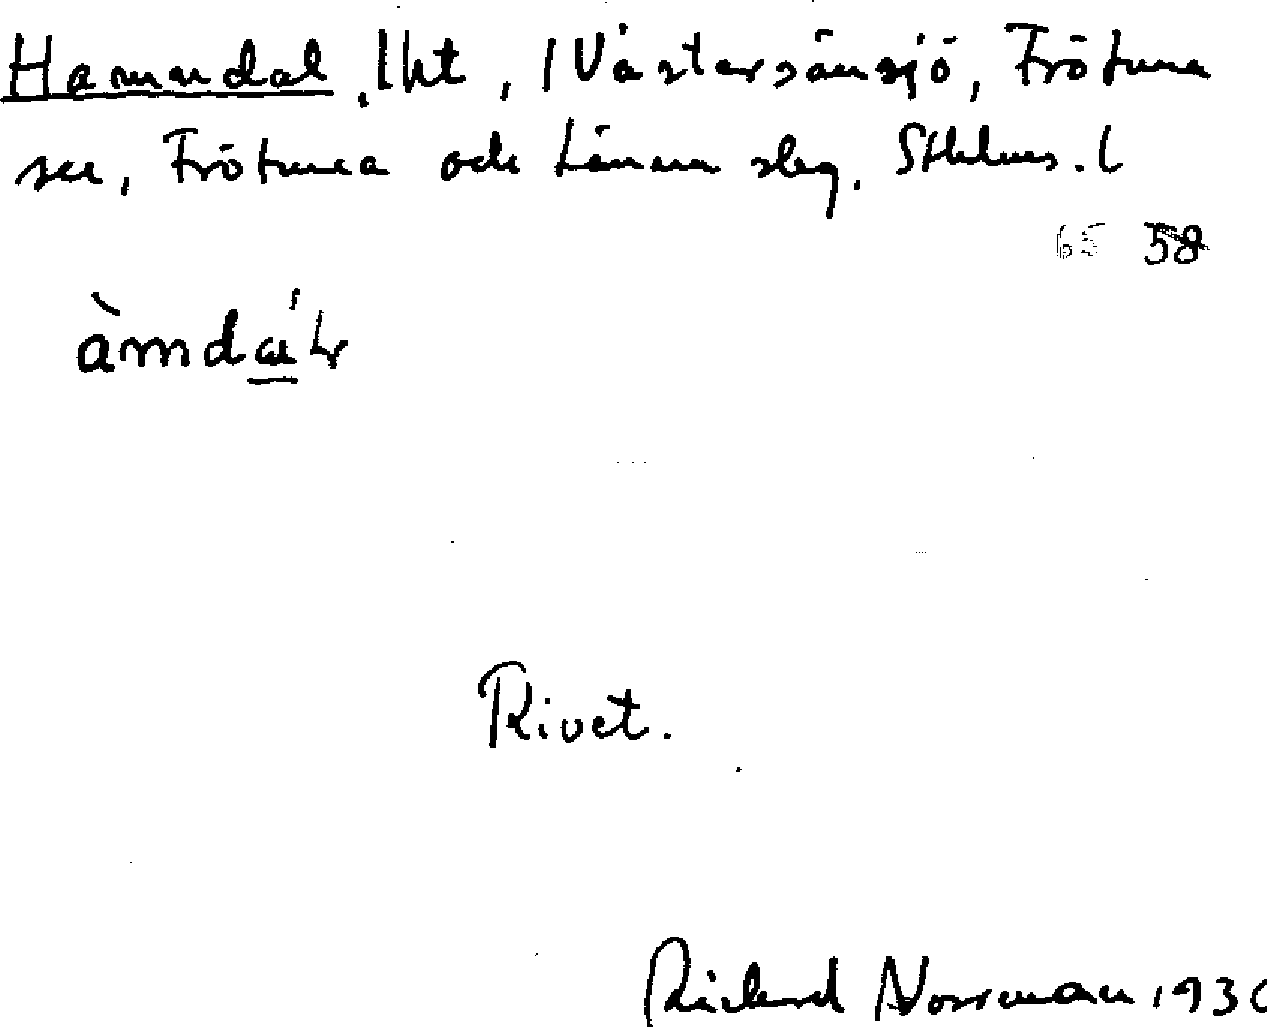 Hamndal, lht, / Västersänsjö, Frötuna
sn, Frötuna och Länna slg. Sthlms. l
65 58
àmdáḷ
Rivet.
Richard Norrman 193